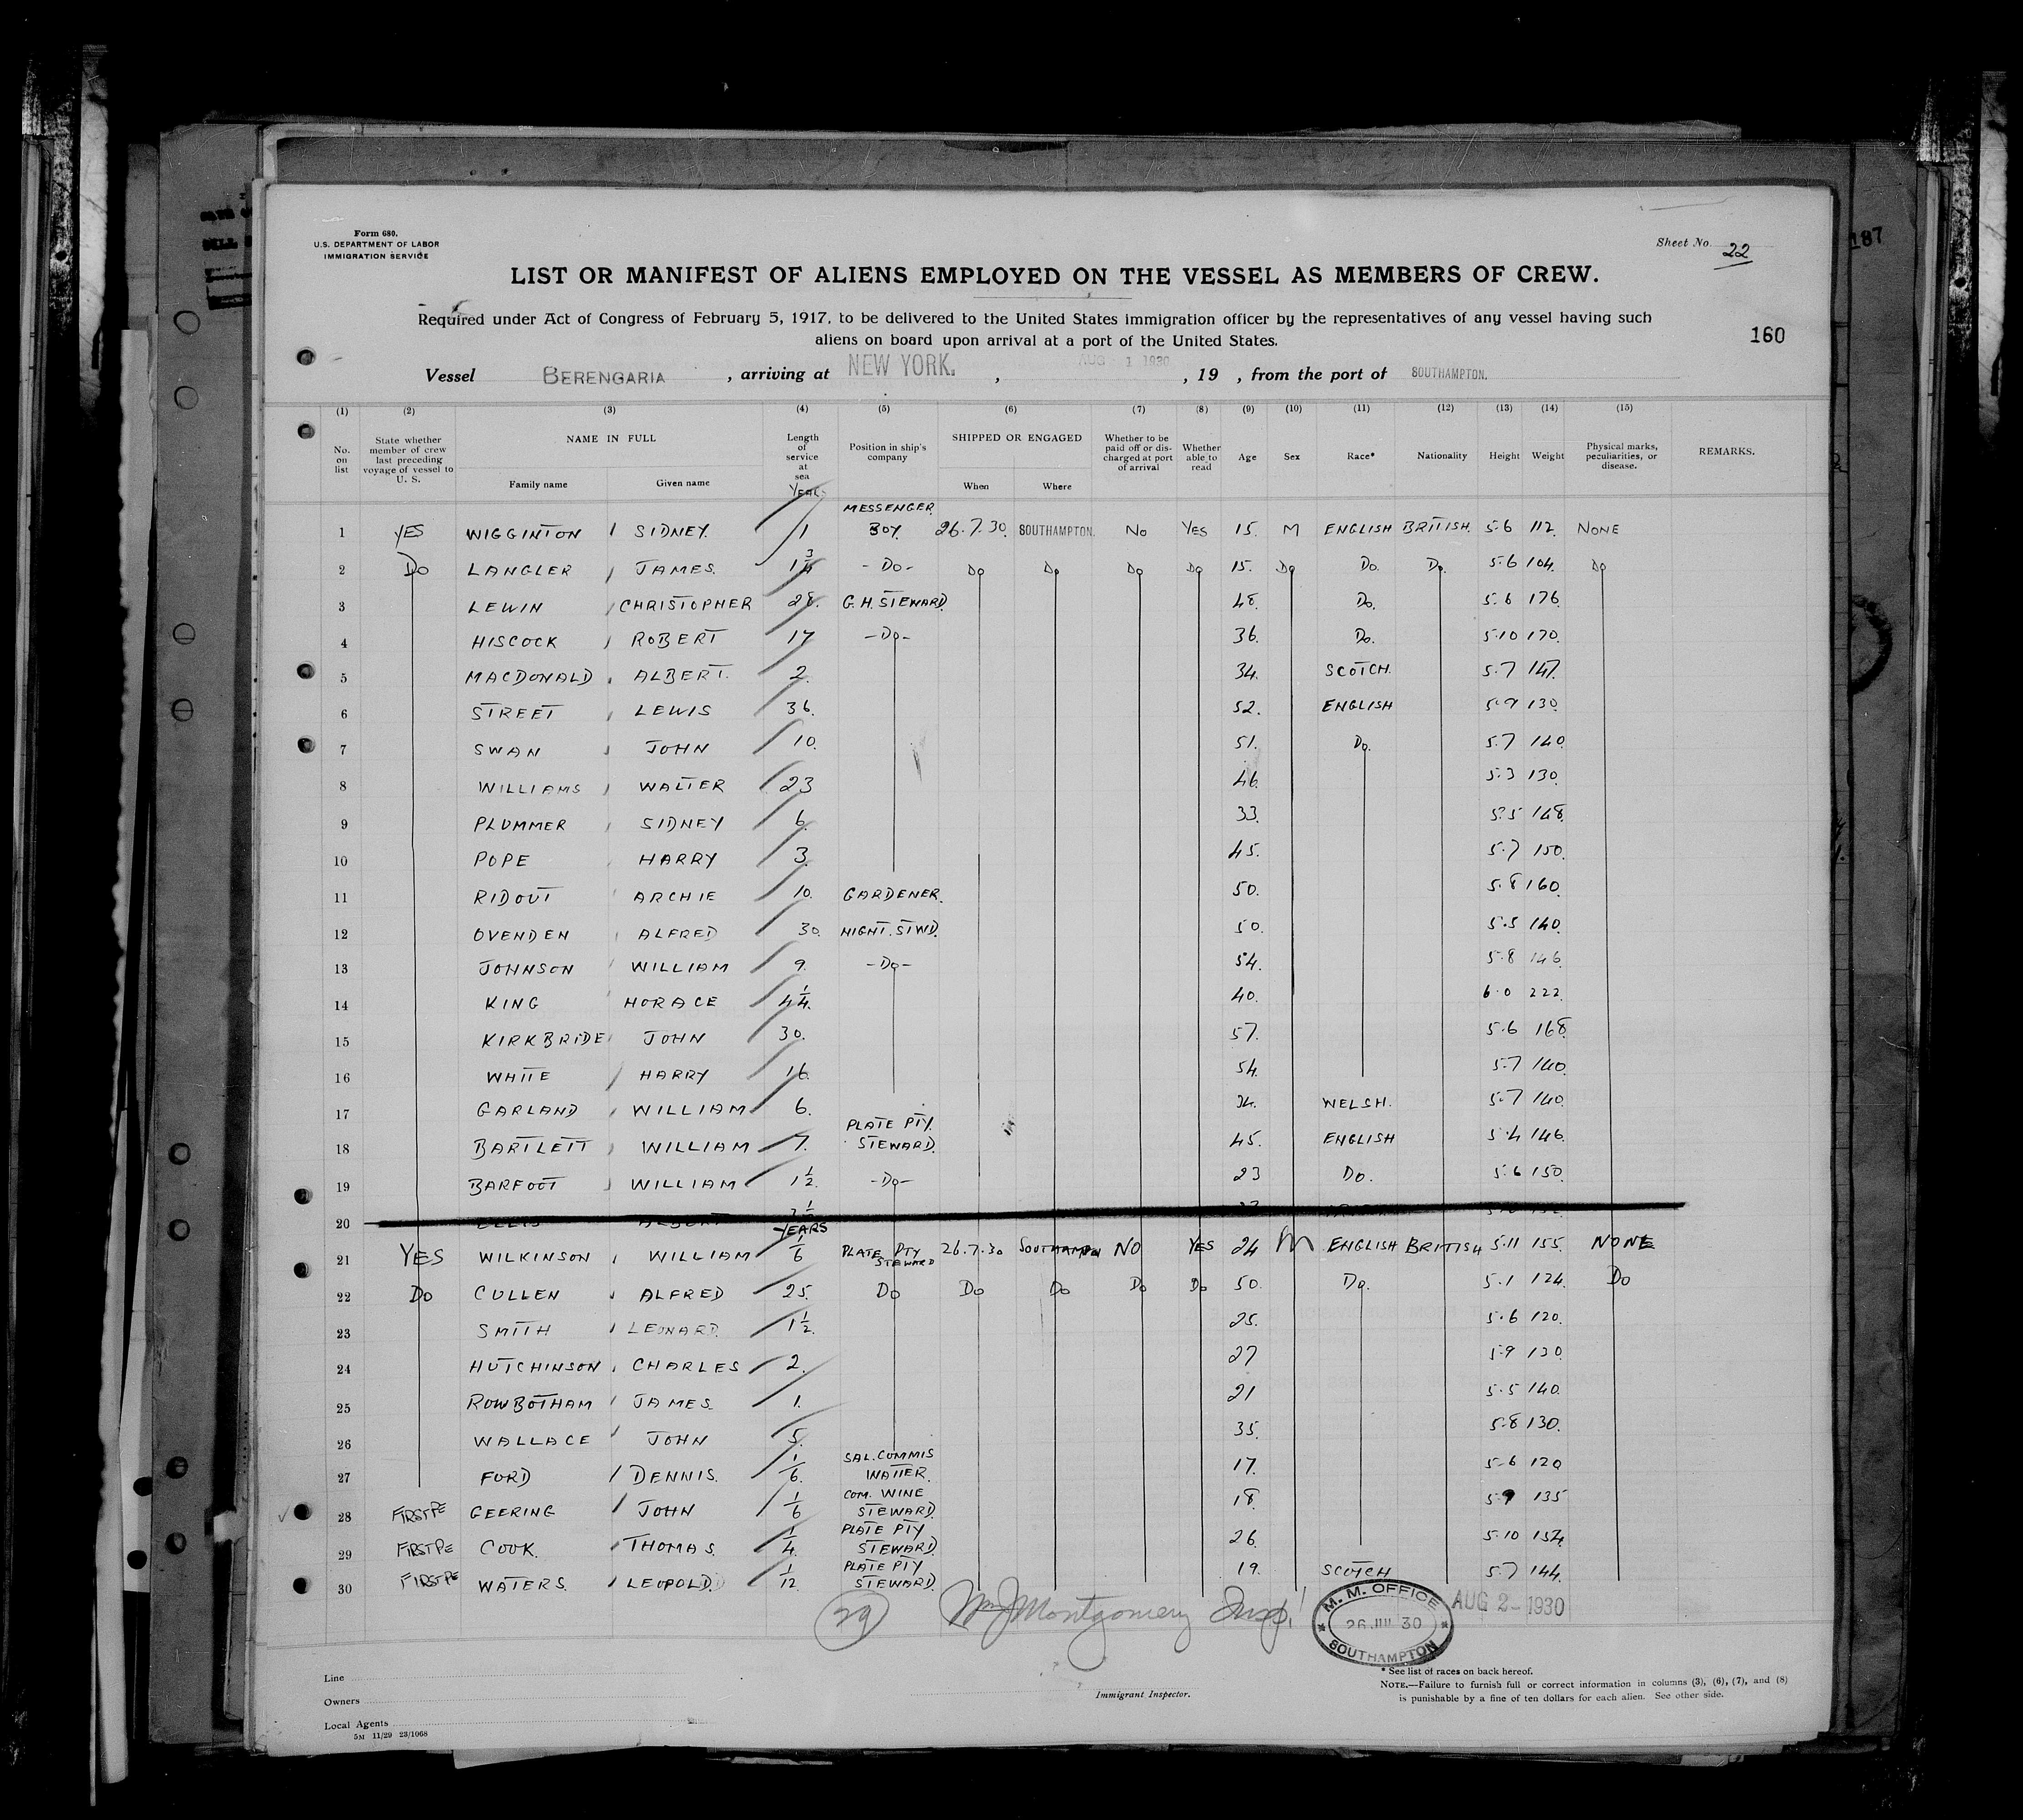 187
Form 680.
U.S. DEPARTMENT OF LABOR
IMMIGRATION SERVICE
Sheet No. 22
LIST OR MANIFEST OF ALIENS EMPLOYED ON THE VESSEL AS MEMBERS OF CREW.
Required under Act of Congress of February 5, 1917, to be delivered to the United States immigration officer by the representatives of any vessel having such
aliens on board upon arrival at a port of the United States.
160
Vessel BERENGARIA , arriving at NEW YORK. , AUG 1 1930 , 19 , from the port of SOUTHAMPTON.
(1) (2) (3) (4) (5) (6) (7) (8) (9) (10) (11) (12) (13) (14) (15)
No. on list State whether member of crew last preceding voyage of vessel to U. S. NAME IN FULL Family name Given name Length of service at sea YEARS Position in ship's company SHIPPED OR ENGAGED When Where Whether to be paid off or discharged at port of arrival Whether able to read Age Sex Race* Nationality Height Weight Physical marks, peculiarities, or disease. REMARKS.
1 YES WIGGINTON SIDNEY. 1 MESSENGER BOY. 26.7.30. SOUTHAMPTON. NO YES 15. M ENGLISH BRITISH. 5.6 112. NONE
2 DO LANGLER JAMES. 1 3/4 -DO- DO DO DO DO 15. DO DO. DO. 5.6 104. DO
3 LEWIN CHRISTOPHER 28. G.H. STEWARD. 48. DO. 5.6 176.
4 HISCOCK ROBERT 17 -DO- 36. DO. 5.10 170.
5 MACDONALD ALBERT. 2. 34. SCOTCH. 5.7 147.
6 STREET LEWIS 36. 52. ENGLISH 5.9 130.
7 SWAN JOHN 10. 51. DO. 5.7 140.
8 WILLIAMS WALTER 23 46. 5.3 130.
9 PLUMMER SIDNEY 6. 33. 5.5 148.
10 POPE HARRY 3. 45. 5.7 150.
11 RIDOUT ARCHIE 10. GARDENER. 50. 5.8 160.
12 OVENDEN ALFRED 30. NIGHT. STWD. 50. 5.5 140.
13 JOHNSON WILLIAM 9. -DO- 54. 5.8 146.
14 KING HORACE 4 1/4. 40. 6.0 222.
15 KIRKBRIDE JOHN 30. 57. 5.6 168.
16 WHITE HARRY 16. 54. 5.7 140.
17 GARLAND WILLIAM 6. 34. WELSH. 5.7 140.
18 BARTLETT WILLIAM 7. PLATE PTY. STEWARD. 45. ENGLISH 5.4 146.
19 BARFOOT WILLIAM 1 1/2. -DO- 23 DO. 5.6 150.
20
YEARS
21 YES WILKINSON WILLIAM 1/6 PLATE PTY STEWARD 26.7.30 SOUTHAMPTON NO YES 24 M ENGLISH BRITISH 5.11 155. NONE
22 DO CULLEN ALFRED 25. DO DO DO DO DO 50. DO. 5.1 124. DO
23 SMITH LEONARD. 1 1/2. 25. 5.6 120.
24 HUTCHINSON CHARLES 2. 27 5.9 130.
25 ROWBOTHAM JAMES. 1. 21 5.5 140.
26 WALLACE JOHN 5. 35. 5.8 130.
27 FORD DENNIS. 1/6. SAL. COMMIS WAITER. 17. 5.6 120
28 FIRST PE GEERING JOHN 1/6 COM. WINE STEWARD. 18. 5.9 135
29 FIRST PE COOK. THOMAS. 1/4. PLATE PTY STEWARD. 26. 5.10 154.
30 FIRST PE WATERS. LEOPOLD. 1/12 PLATE PTY STEWARD. 19. SCOTCH 5.7 144.
29 Wm J Montgomery Insp. M. M. OFFICE 26 JUL 30 SOUTHAMPTON AUG 2 - 1930
Line
Owners
Local Agents
5M 11/29 23/1068
Immigrant Inspector.
* See list of races on back hereof.
NOTE.—Failure to furnish full or correct information in columns (3), (6), (7), and (8)
is punishable by a fine of ten dollars for each alien. See other side.